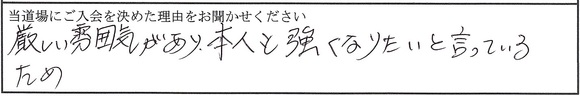 当道場にご入会を決めた理由をお聞かせください
厳しい雰囲気があり、本人も強くなりたいと言っている
ため